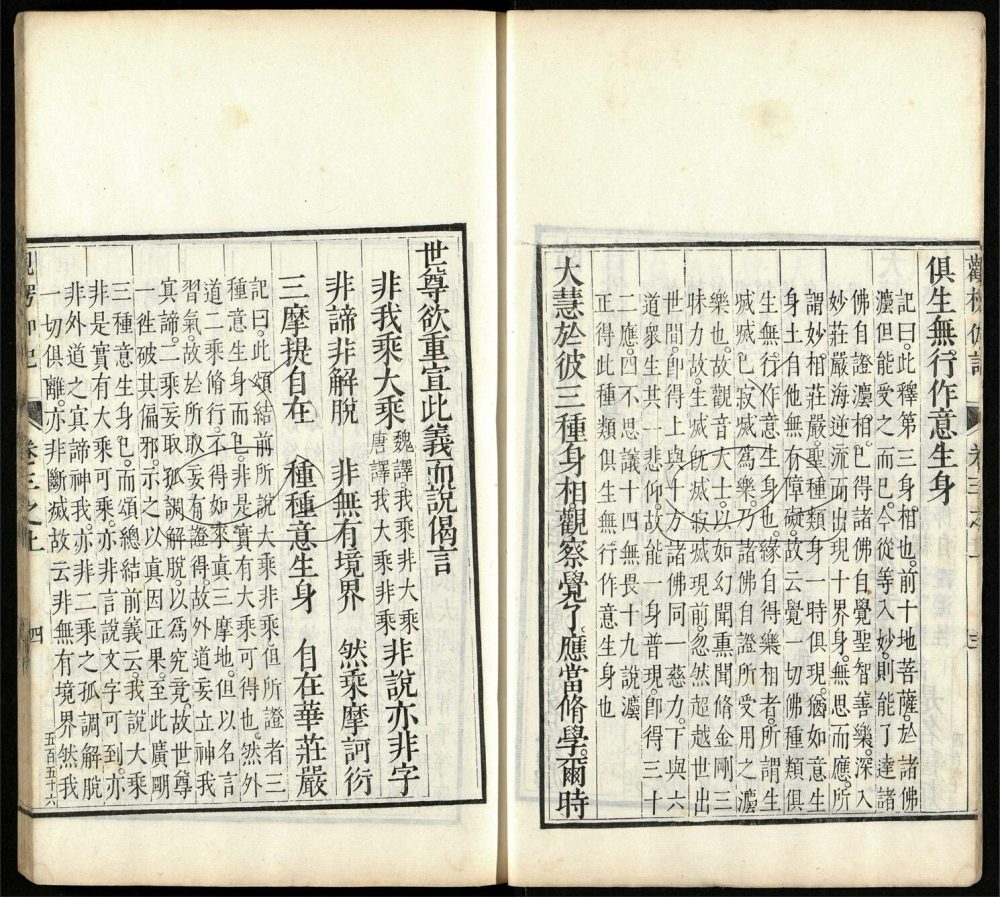 觀楞伽記 卷三之上 三
俱生無行作意生身
記曰。此釋第三身相也。前十地菩薩。於諸佛
灋但能受之而已。今從等入妙。則能了達諸
佛自證灋相。已得諸佛自覺聖智善樂。深入
妙莊嚴海逆流而出現十界身。無思而應。所
謂妙相莊嚴。聖種類身一時俱現。猶如意生
身土自他無有障礙。故云覺一切佛種類俱
生無行作意生身也。緣自得樂相者。所謂生
滅滅已寂滅為樂。乃諸佛自證所受用之灋
樂也。故觀音大士。以如幻聞熏聞脩金剛三
昧力故。生滅既滅寂滅現前。忽然超越世出
世間。即得上與十方諸佛同一慈力。下與六
道眾生其一悲仰。故能一身普現。即得三十
二應。四不思議十四無畏十九說灋
正得此種類俱生無行作意生身也
大慧於彼三種身相觀察覺了。應當脩學。爾時
世尊欲重宣此義而說偈言
非我乘大乘 魏譯我乘非大乘 唐譯我大乘非乘 非說亦非字
非諦非解脫 非無有境界 然乘摩訶衍
三摩提自在 種種意生身 自在華莊嚴
記曰。此頌結前所說大乘非乘。但所證者三
種意生身而已。非是實有大乘可得也。然外
道二乘脩行。不得如來真三摩地。但以名言
習氣。故於所取妄有證得。故外道妄立神我
真諦。二乘妄取孤調解脫。以為究竟。故世尊
一徃破其偏邪。示之以真因正果。至此廣剛
三種意生身已。而頌總結前義云。我說大乘
非是實有大乘可乘。亦非言說文字可到。亦
非外道之冥諦神我。亦非二乘之孤調解脫
一切俱離。亦非斷滅故云非無有境界然我
觀楞伽記 卷三之上 四
五百五十六